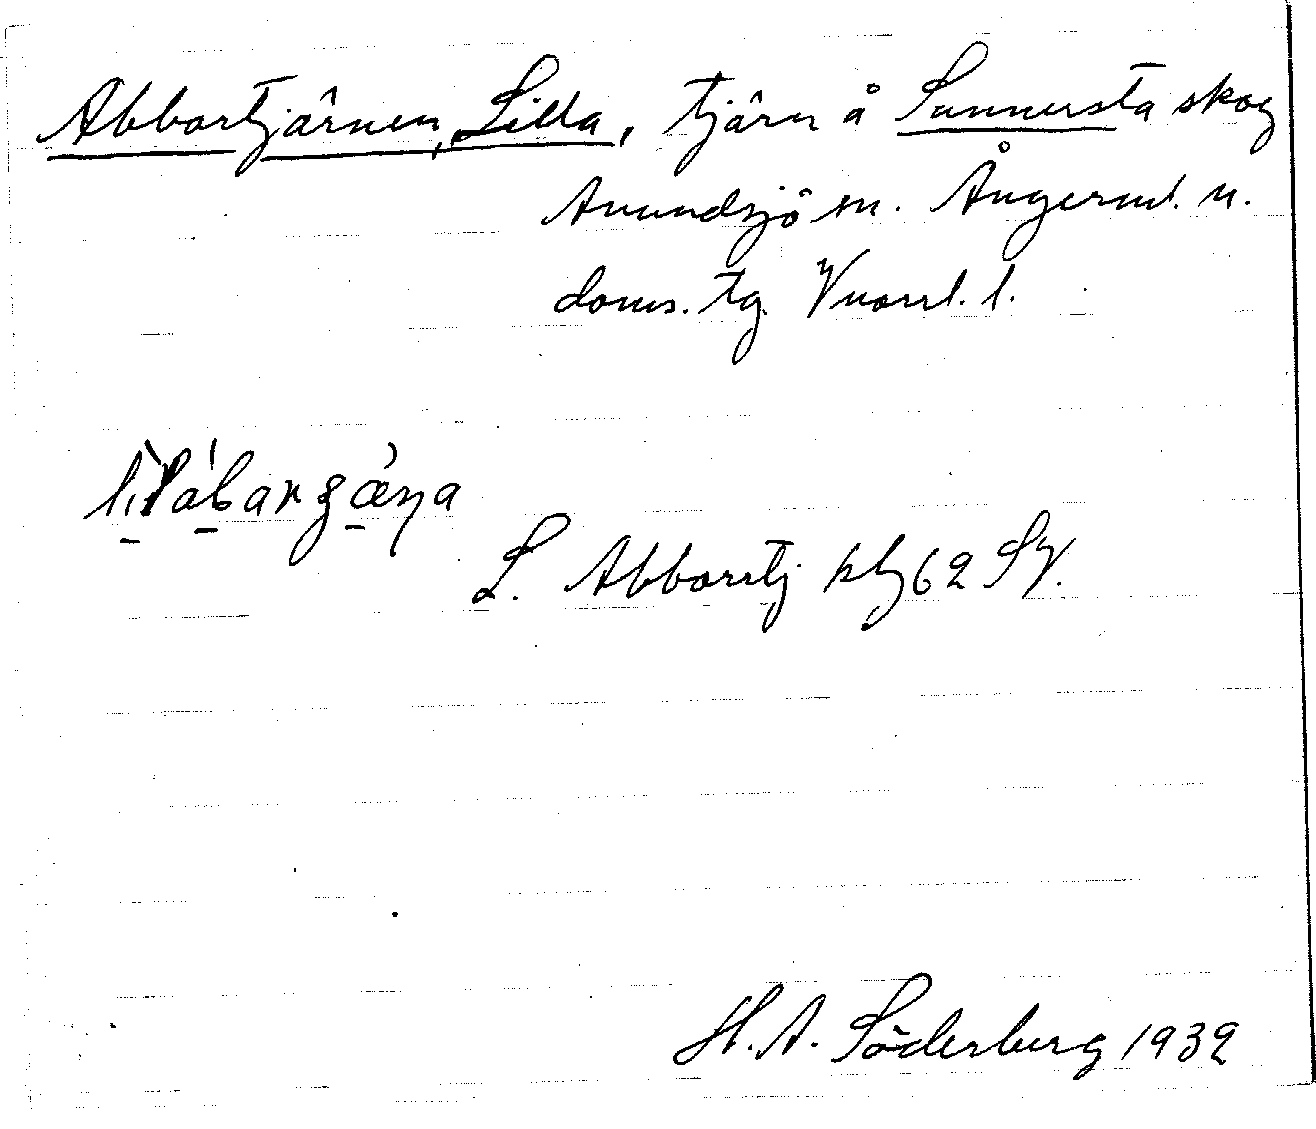 Abbortjärnen, Lilla, tjärn å Sunnersta skog
Anundsjö sn. Ångerml. n.
doms. tg. Vnorrl. l.
L. Abborrtj kbl 62 SV.
H. A. Söderberg 1932